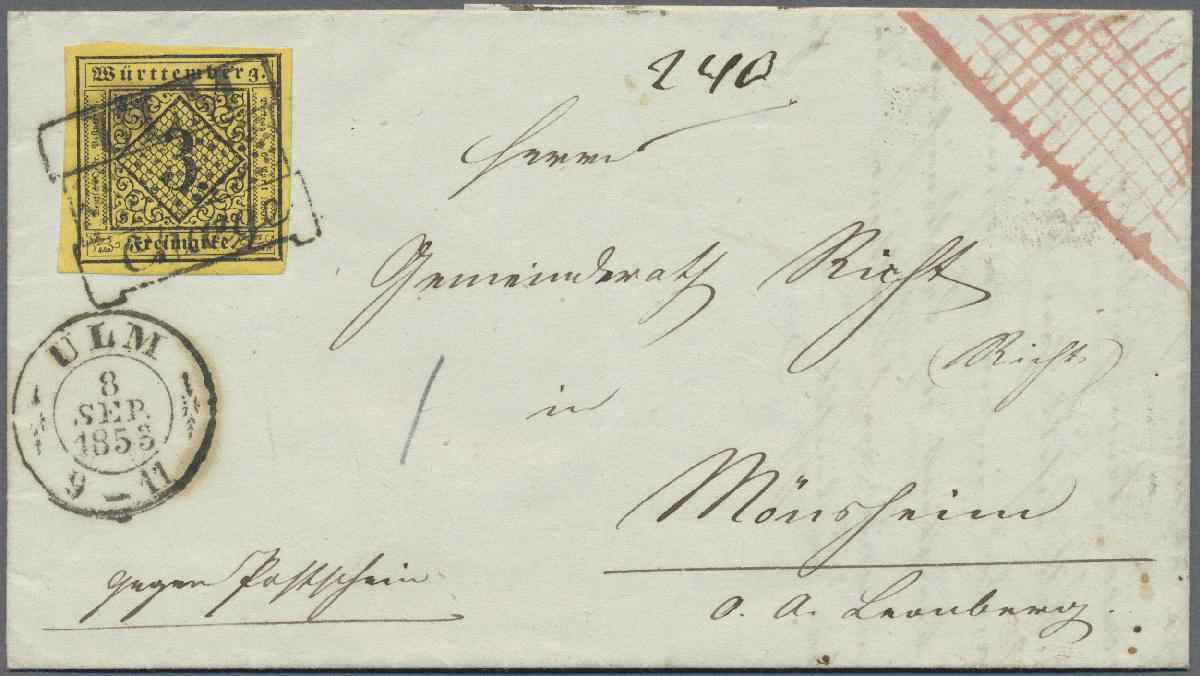 Württemberg.
3
Freimarke
Chargé
ULM
8
SEP.
1853
9 - 11
240
Herrn
Gemeinderath Richt
(Richt)
in
Mönsheim
O. A. Leonberg.
gegen Postschein